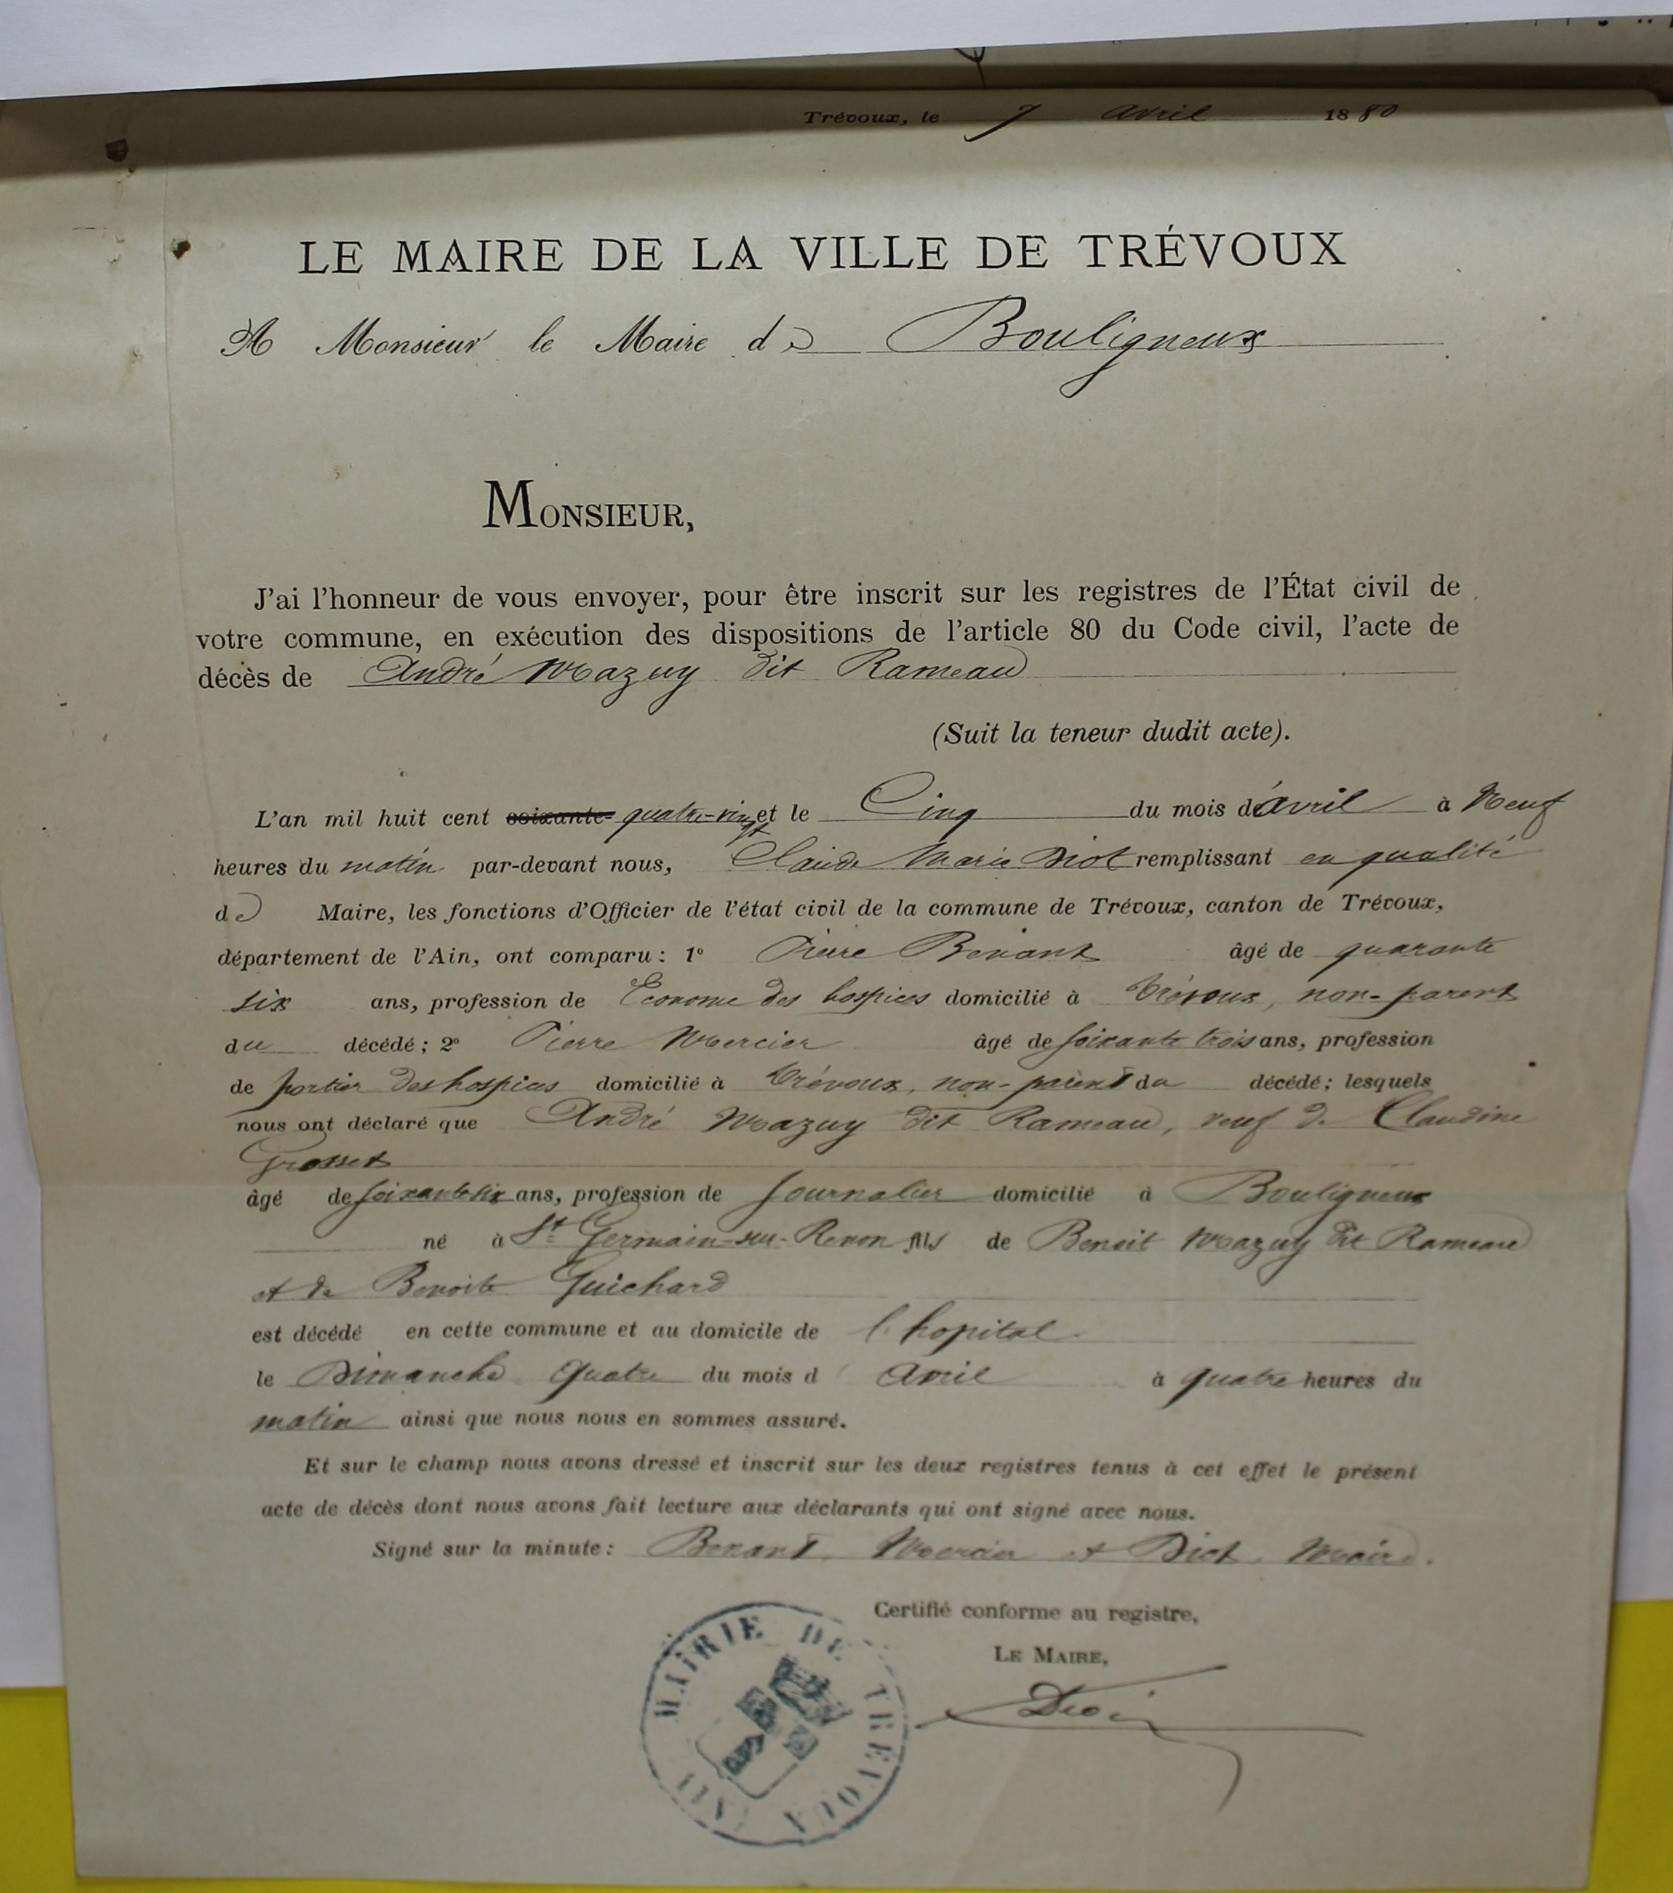 Trévoux, le 7 avril 1880
LE MAIRE DE LA VILLE DE TRÉVOUX
A Monsieur le Maire de Bouligneux
MONSIEUR,
J'ai l'honneur de vous envoyer, pour être inscrit sur les registres de l'État civil de
votre commune, en exécution des dispositions de l'article 80 du Code civil, l'acte de
décès de André Mazuy dit Rameau
(Suit la teneur dudit acte).
L'an mil huit cent soixante quatre-vingt et le Cinq du mois d'avril à Neuf
heures du matin par-devant nous, Claude Marie Diot remplissant en qualité
de Maire, les fonctions d'Officier de l'état civil de la commune de Trévoux, canton de Trévoux,
département de l'Ain, ont comparu : 1º Pierre Benant âgé de quarante
six ans, profession de Econome des hospices domicilié à Trévoux, non-parent
du décédé ; 2º Pierre Mercier âgé de soixante trois ans, profession
de portier des hospices domicilié à Trévoux, non-parent du décédé ; lesquels
nous ont déclaré que André Mazuy dit Rameau, veuf de Claudine
Grosset
âgé de soixante six ans, profession de Journalier domicilié à Bouligneux
né à St Germain-sur-Renon fils de Benoit Mazuy dit Rameau
et de Benoite Guichard
est décédé en cette commune et au domicile de l'hopital
le Dimanche quatre du mois d'avril à quatre heures du
matin ainsi que nous nous en sommes assuré.
Et sur le champ nous avons dressé et inscrit sur les deux registres tenus à cet effet le présent
acte de décès dont nous avons fait lecture aux déclarants qui ont signé avec nous.
Signé sur la minute : Benant, Mercier et Diot, Maire.
Certifié conforme au registre,
LE MAIRE,
Diot
MAIRIE DE TREVOUX (AIN)